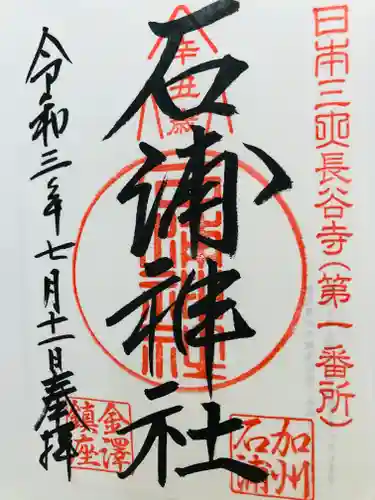 日本三大長谷寺（第一番所）
辛丑歳
石浦神社
加州
石浦
金澤
鎮座
令和三年七月十一日奉拝